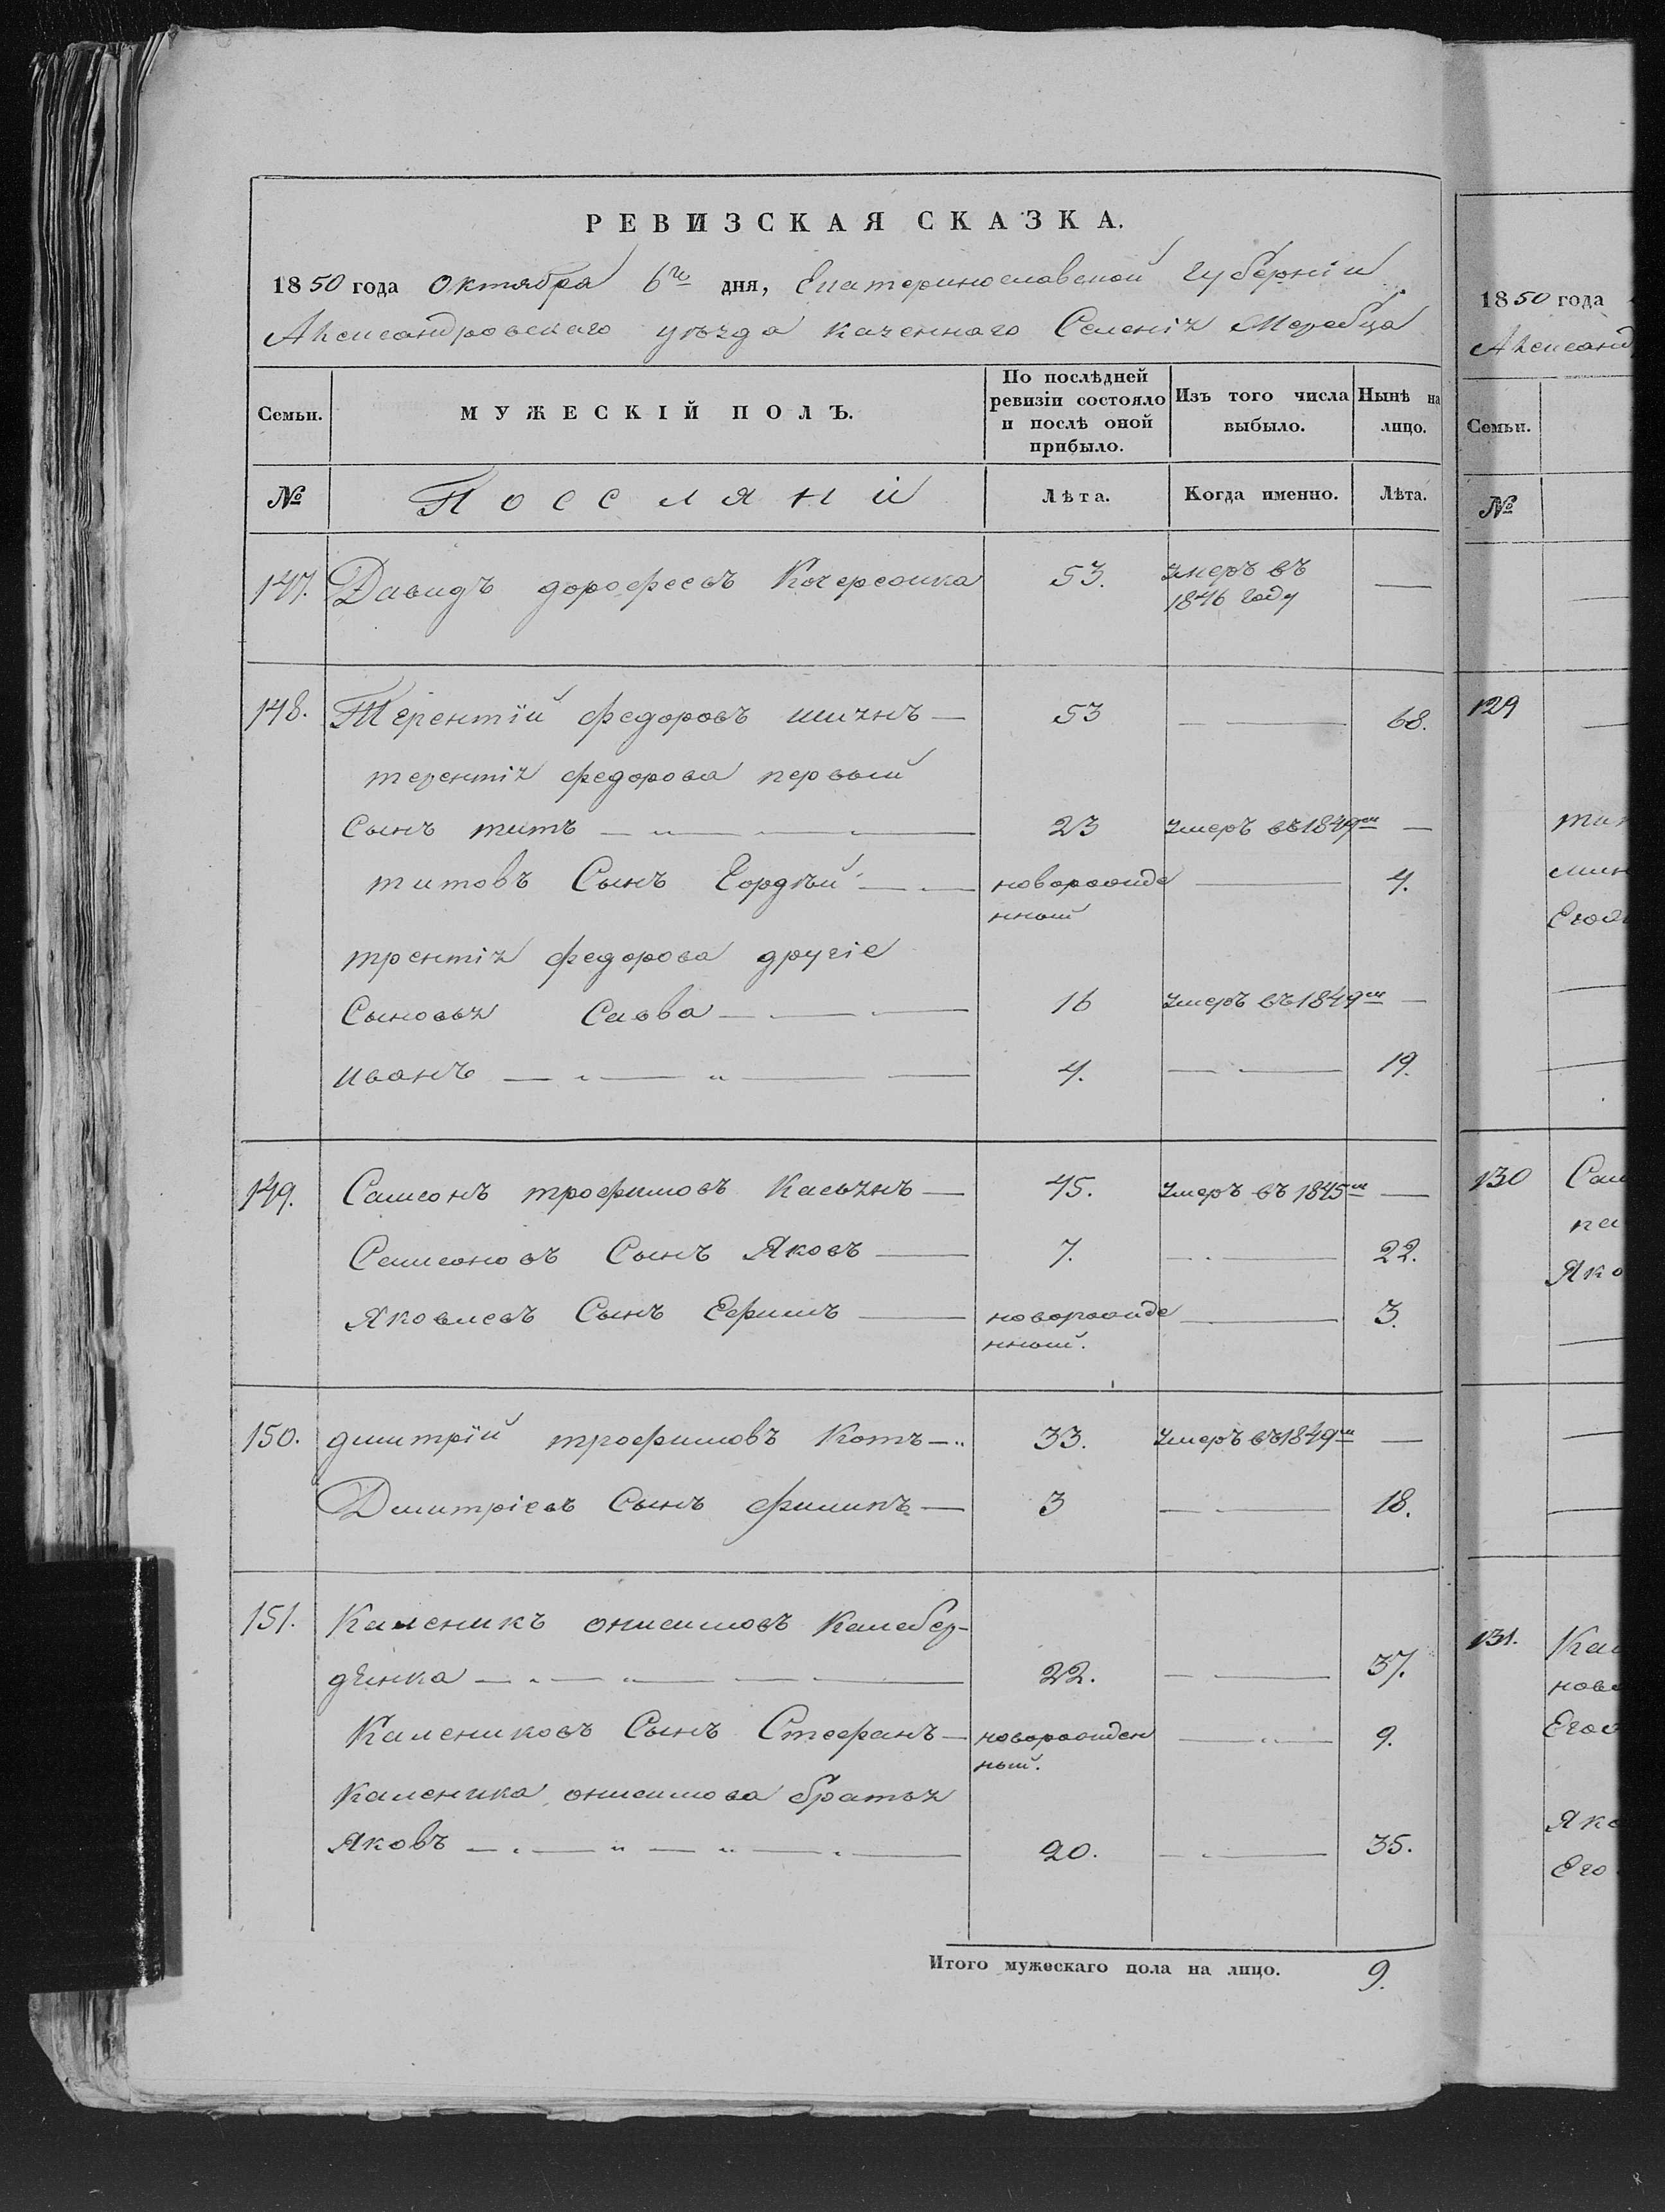 РЕВИЗСКАЯ СКАЗКА.
1850 года Октября 6го дня, Екатеринославской Губерніи
Александровскаго уѣзда казеннаго Селенія Жеребца
Семьи. МУЖЕСКІЙ ПОЛЪ. По послѣдней ревизіи состояло и послѣ оной прибыло. Изъ того числа выбыло. Нынѣ на лицо.
№ Поселяни Лѣта. Когда именно. Лѣта.
147. Давидъ дорофеевъ 53. умеръ въ —
1846 году
148. Терентій федоровъ — 53 — 68.
терентія федорова первый
Сынъ титъ — 23 умеръ въ 1849м —
титовъ Сынъ Гордѣй — новорожде — 4.
нный
трентія федорова другіе
Сыновья Савва — 16 умеръ въ 1849м —
иванъ — 4. — 19.
149. Самсонъ трофимовъ Касьянъ — 45. умеръ въ 1845м —
Самсоновъ Сынъ Яковъ — 7. — 22.
Яковлевъ Сынъ Ефимъ — новорожде — 3.
нный.
150. дмитрій трофимовъ Котъ — 33. умеръ въ 1849м —
Дмитріевъ Сынъ филипъ — 3 — 18.
151. Каленикъ онисимовъ Калабер-
дѣнка — 22. — 37.
Калениковъ Сынъ Стефанъ — новорожден — 9.
ный.
Каленика онисимова братья
Яковъ — 20. — 35.
Итого мужескаго пола на лицо. 9.
1850 года
Александ
Семьи.
№
129
Его
130 Сам
Яко
131. Кал
ново
Его
Яко
Его